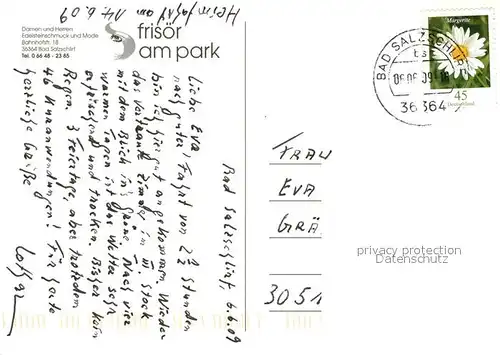 Heimfahrt am 14.6.09
Damen und Herren
Edelsteinschmuck und Mode
Bahnhofstr. 18
36364 Bad Salzschlirf
Tel. 0 66 48 - 23 85
frisör
am park
Bad Salzschlirf, 6.6.09
Liebe Eva! Fahrt von 2 1/2 Stunden
nach guter
bin ich hier gut angekommen. Wieder
das vertraute Zimmer im III Stock
mit dem Blick in's Grüne. Nach vier
warmen Tagen ist das Wetter sehr
erfrischend und trocken. Bisher kein
Regen. 3 Feiertage, aber trotzdem
46 Kuranwendungen! Für heute
herzliche Grüße
Lothar
Margerite
45
Deutschland
BAD SALZSCHLIRF
36364
FRAU
EVA
GRÄ
3051
privacy protection
Datenschutz